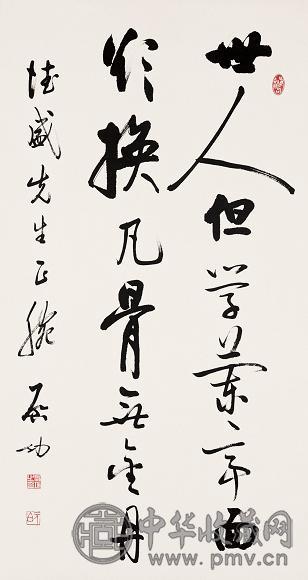 世人但学蘭亭面
欲換凡骨無金丹
盛先生正腕 启功
中华收藏网
www.pmv.cn